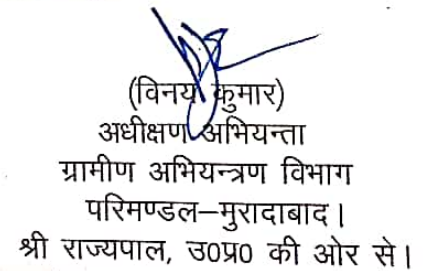 (विनय कुमार)
अधीक्षण अभियन्ता
ग्रामीण अभियन्त्रण विभाग
परिमण्डल–मुरादाबाद।
श्री राज्यपाल, उ0प्र0 की ओर से।